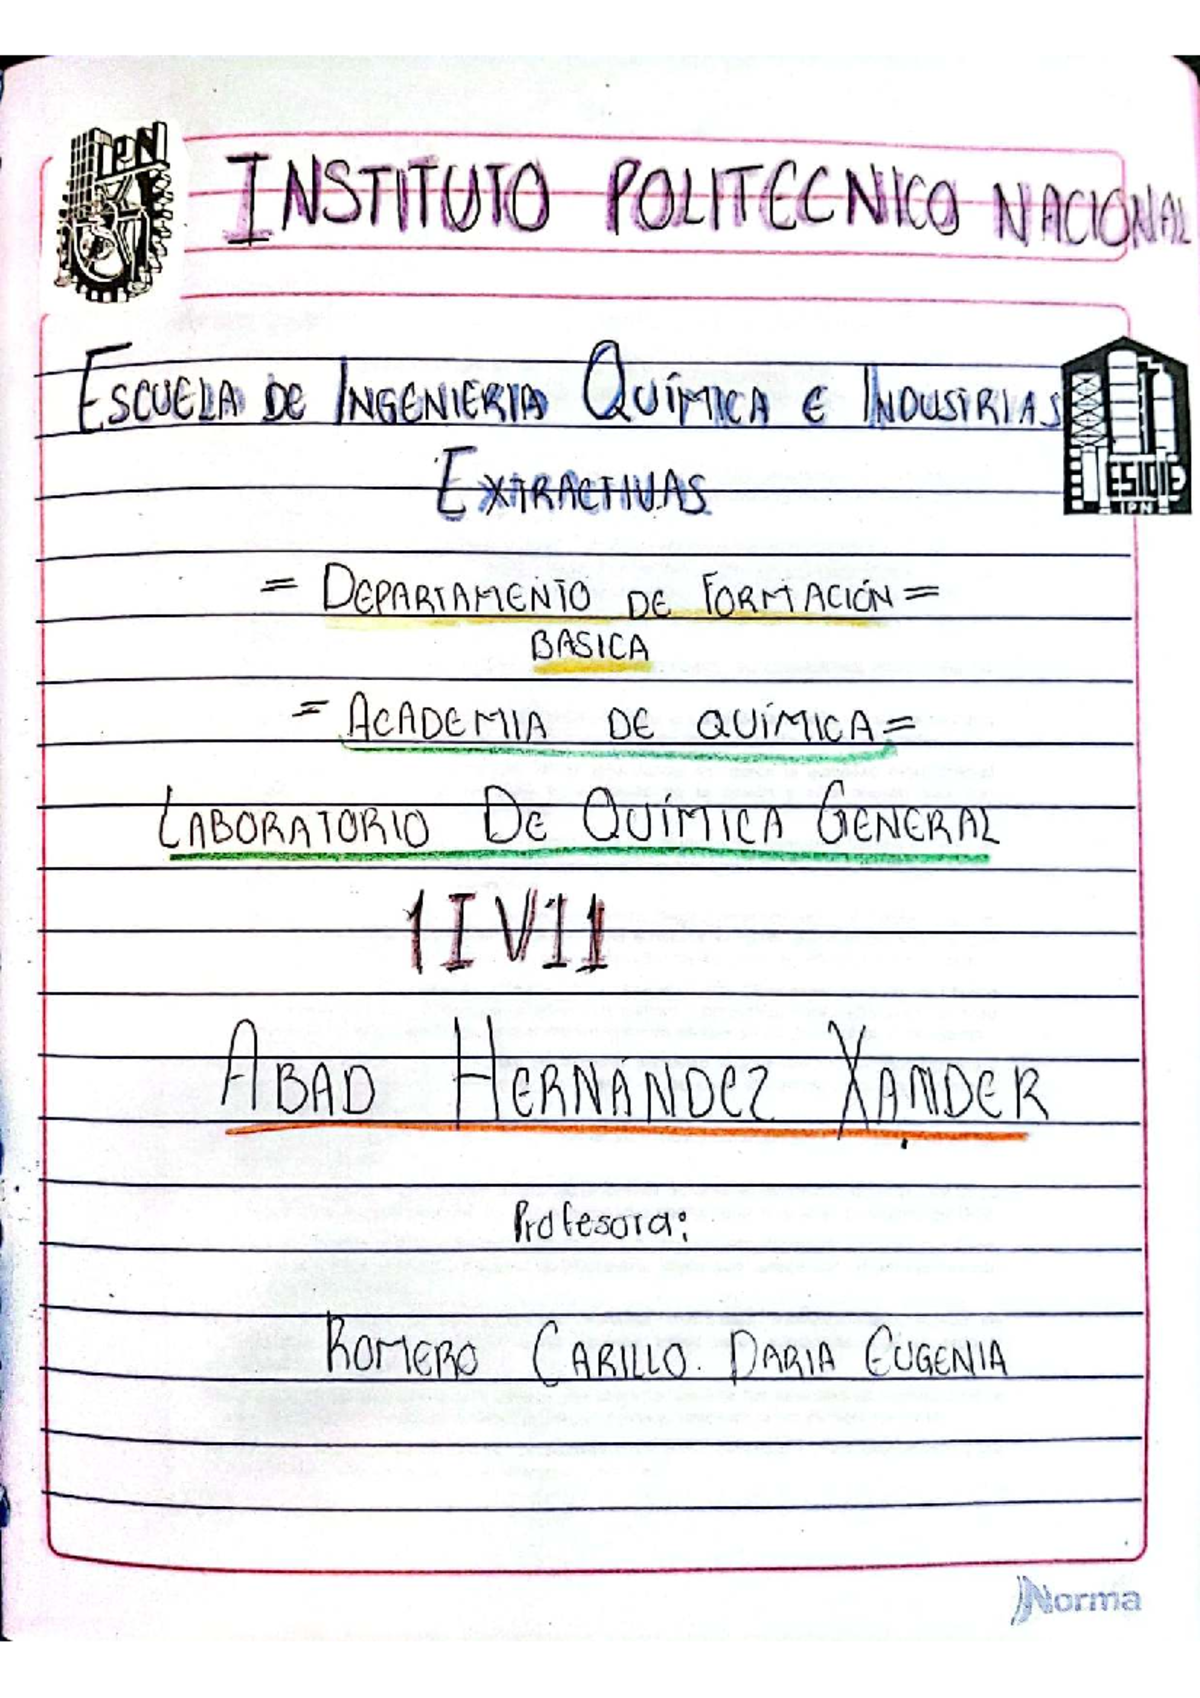 IPN
INSTITUTO POLITECNICO NACIONAL
ESCUELA DE INGENIERIA QUÍMICA E INDUSTRIAS
EXTRACTIVAS
ESIQIE
IPN
= DEPARTAMENTO DE FORMACIÓN =
BASICA
= ACADEMIA DE QUÍMICA =
LABORATORIO DE QUÍMICA GENERAL
1IV11
ABAD HERNÁNDEZ XANDER
Profesora:
ROMERO CARILLO. DARIA EUGENIA
Norma